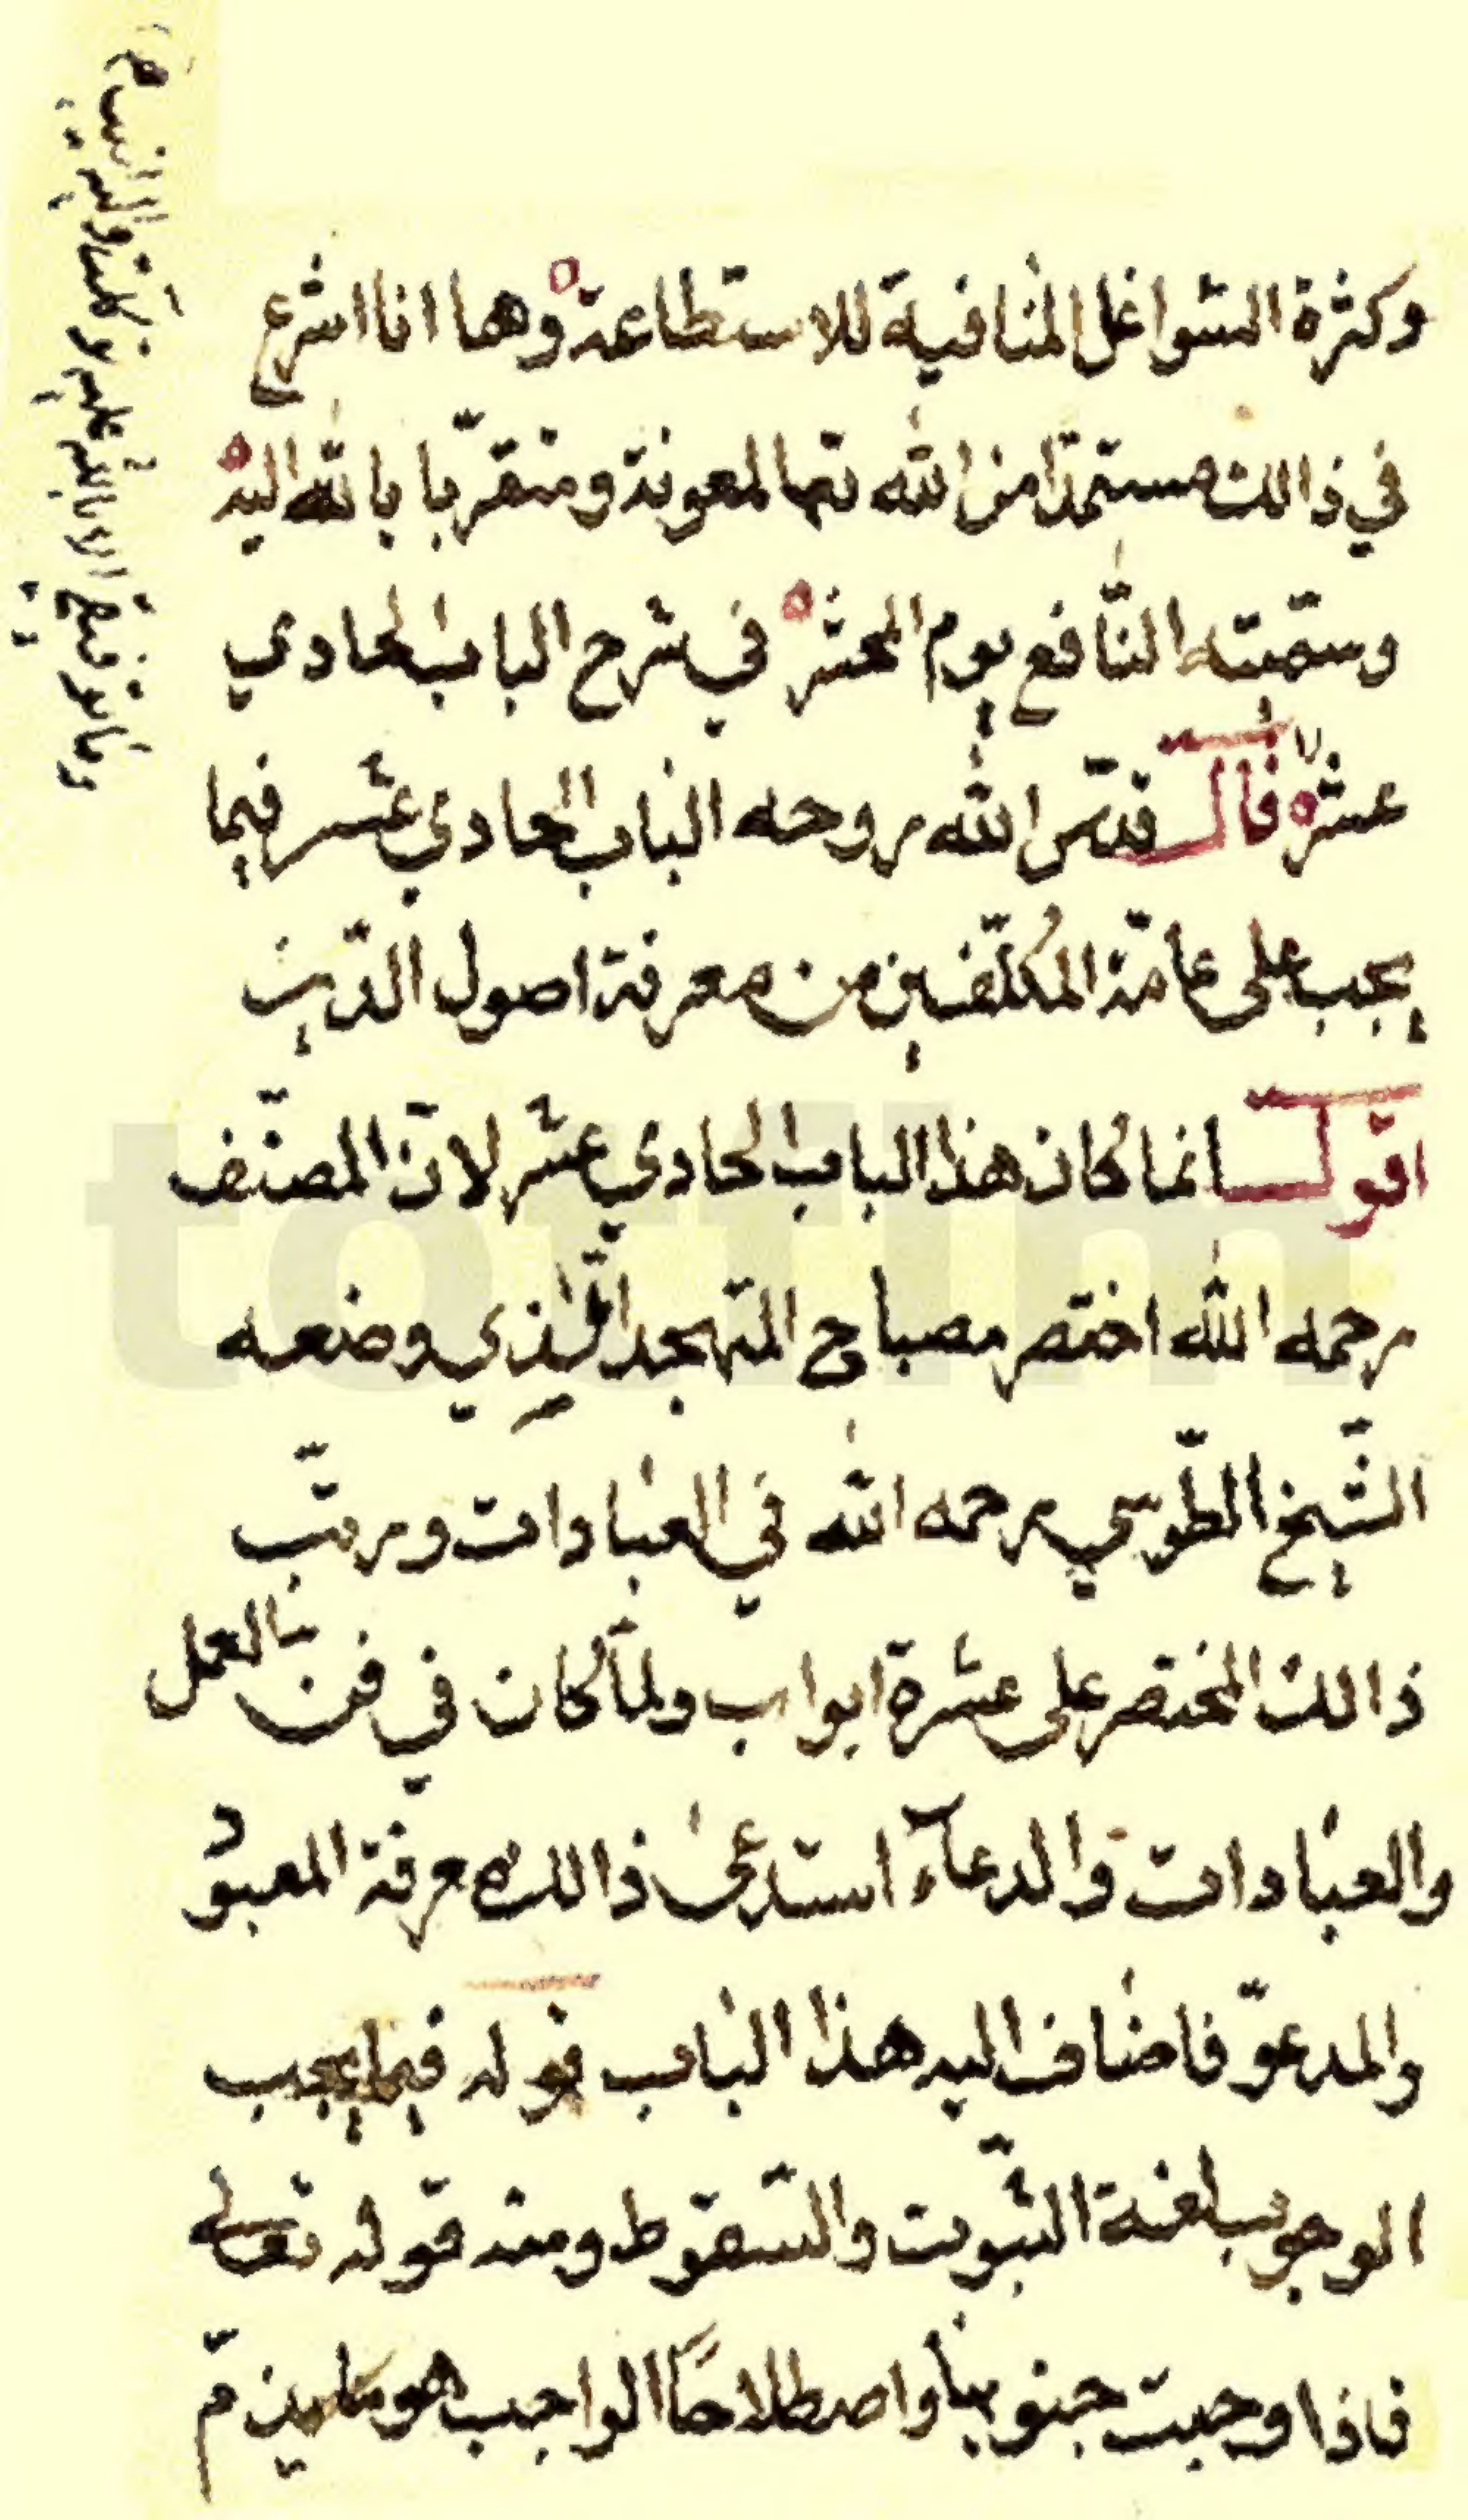 وكثرة الشواغل المنافية للاستطاعة وها انا اشرع
في ذالك مستمدّا من الله تعا المعونة ومتقرّبا بالله اليه
وسمّيته النّافع يوم المحشر في شرح الباب الحادي
عشر قال قدّس الله روحه الباب الحادي عشر فيما
يجب على عامّة المُكلّفين من معرفة اصول الدّين
اقول انما كان هذا الباب الحادي عشر لانّ المصنّف
رحمه الله اختصر مصباح المتهجد الّذي وضعه
الشّيخ الطّوسي رحمه الله في العبادات ورتّب
ذالك المختصر على عشرة ابواب ولمّا كان في فن العمل
والعبادات والدعآء استدعى ذالك معرفة المعبود
والمدعوّ فاضاف اليه هذا الباب قوله فيما يجب
الوجوب لغة الثّبوت والسّقوط ومنه قوله تعالى
فاذا وجبت جنوبها واصطلاحًا الواجب هو ما يذمّ
وما توفيقي الا بالله عليه توكلت واليه انيب